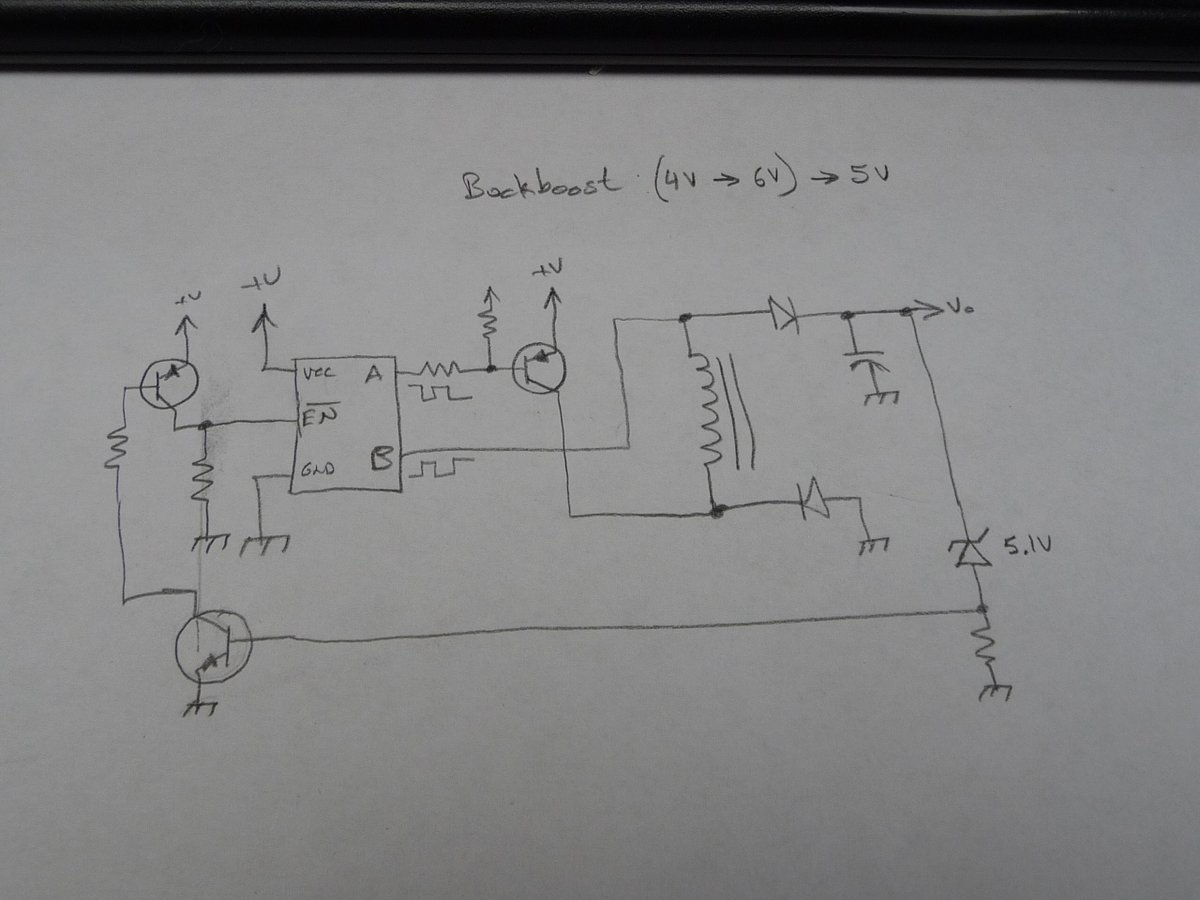 Buckboost (4V → 6V) → 5V
+V
+V
+V
VCC
A
EN
B
GND
Vo
5.1V